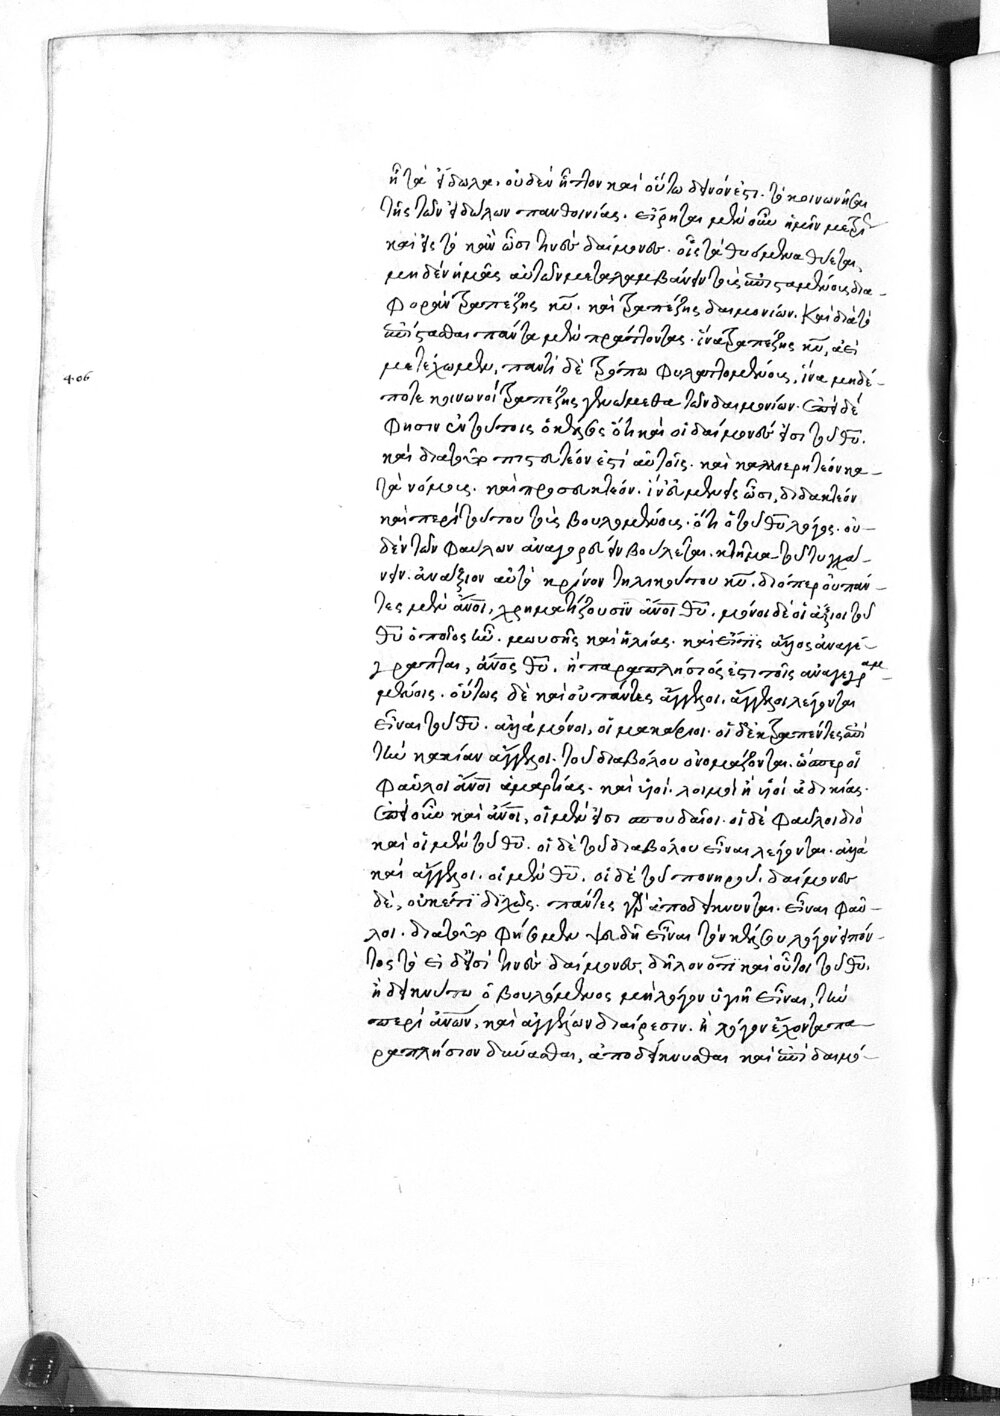 ἢ τὰ εἴδωλα, οὐδὲν ἧττον καὶ οὕτω δεινόν ἐστι. τὸ κοινωνῆσαι
τῆς τῶν εἰδώλων πανθοινίας. εἴρηται μὲν οὖν ἡμῖν
καὶ εἰς τὸ κἂν ὦσί τινες δαίμονες. οἷς τὰ θυόμενα θύεται,
μὴ δεῖν ἡμᾶς αὐτῶν μεταλαμβάνειν τοὺς ἐπισταμένους δια-
φορὰν τραπέζης κυ. καὶ τραπέζης δαιμονίων. καὶ διὰ τὸ
ἐπίστασθαι πάντα μὲν πράττοντας. ἵνα τραπέζης κυ, ἀεὶ
μετέχωμεν, παντὶ δὲ τρόπῳ φυλαττομένους, ἵνα μηδέ-
ποτε κοινωνοὶ τραπέζης γενώμεθα τῶν δαιμονίων. ἐπεὶ δέ
φησιν ἐν τούτοις ὁ κέλσος ὅτι καὶ οἱ δαίμονές εἰσι τοῦ θυ.
καὶ διὰ τοῦτο πιστευτέον ἐστὶ αὐτοῖς. καὶ καλλιερητέον κα-
τὰ νόμους. καὶ προσευκτέον. ἵν' εὐμενεῖς ὦσι, διδακτέον
καὶ περὶ τούτου τοὺς βουλομένους. ὅτι ὁ τοῦ θυ λόγος. οὐ-
δὲν τῶν φαύλων ἀναγορεύειν βούλεται. κτῆμα τοῦ τυγχά-
νειν. ἀνάξιον αὐτὸ κρίνον τηλικούτου κυ. διόπερ οὐ πάν-
τες μὲν ἄνοι, χρηματίζουσιν ἄνοι θυ. μόνοι δὲ οἱ ἄξιοι τοῦ
θυ ὁποῖος ἦν. μωυσῆς καὶ ἠλίας. καὶ εἴ τις ἄλλος ἀναγέ-
γραπται, ἄνος θυ. ἢ παραπλήσιός ἐστι τοῖς ἀναγεγραμ-
μένοις. οὕτως δὲ καὶ οὐ πάντες ἄγγελοι, ἄγγελοι λέγονται
εἶναι τοῦ θυ. ἀλλὰ μόνοι, οἱ μακάριοι. οἱ δ' ἐκτραπέντες ἐπὶ
τὴν κακίαν ἄγγελοι. τοῦ διαβόλου ὀνομάζονται. ὥσπερ οἱ
φαῦλοι ἄνοι ἁμαρτίας. καὶ υἱοὶ. λοιμοὶ ἢ υἱοὶ ἀδικίας.
ἐπεὶ οὖν καὶ ἄνοι, οἱ μὲν εἰσὶ σπουδαῖοι. οἱ δὲ φαῦλοι διὸ
καὶ οἱ μὲν τοῦ θυ. οἱ δὲ τοῦ διαβόλου εἶναι λέγονται. ἀλλὰ
καὶ ἄγγελοι. οἱ μὲν θυ. οἱ δὲ τοῦ πονηροῦ. δαίμονες
δὲ, οὐκ ἔτι διχῶς. πάντες γὰρ ἀποδείκνυνται. εἶναι φαῦ-
λοι. διὰ τοῦτο φήσομεν ψευδῆ εἶναι τὸν κέλσου λόγον εἰπόν-
τος τὸ εἰ δ' εἰσί τινες δαίμονες, δῆλον ὅτι καὶ οὗτοι τοῦ θυ.
ἢ δεικνύτω ὁ βουλόμενος μὴ λόγον ὑγιῆ εἶναι, τὴν
περὶ ἄνων, καὶ ἀγγέλων διαίρεσιν. ἢ λόγον ἔχοντα πα-
ραπλήσιον δύνασθαι, ἀποδείκνυσθαι καὶ ἐπὶ δαιμό-
4.06